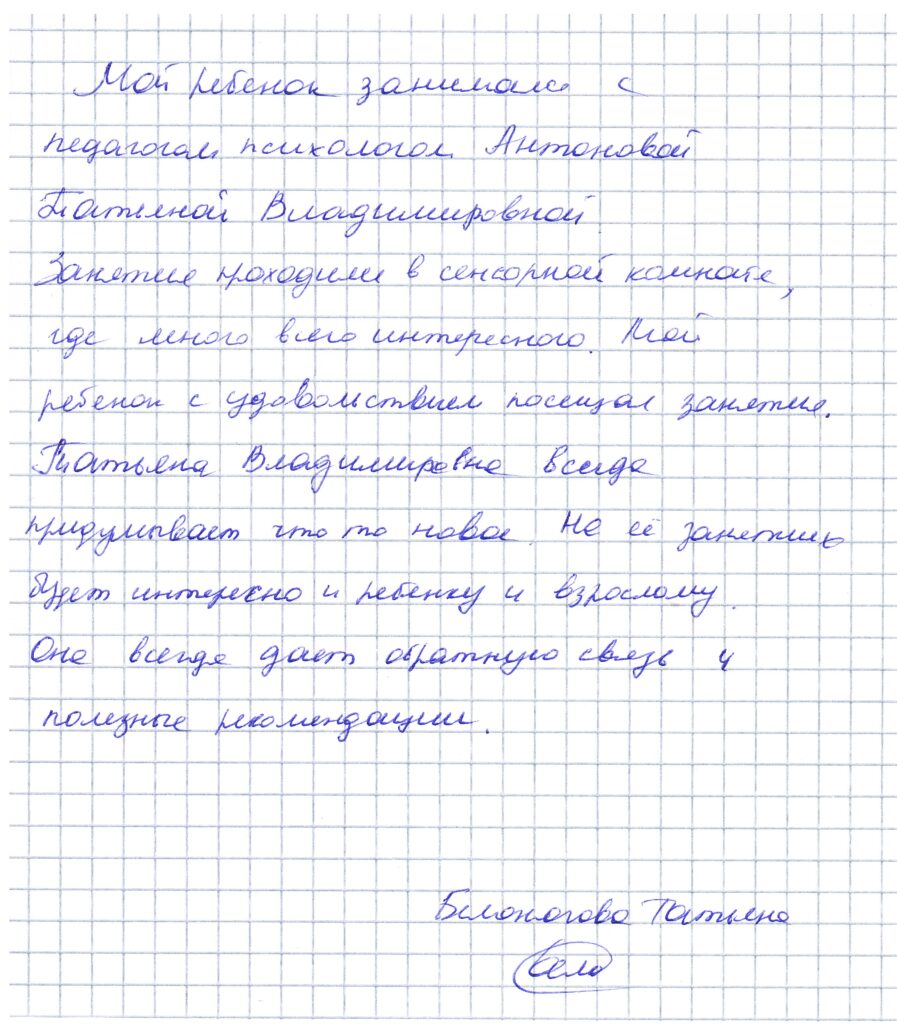 Мой ребенок занимался с
педагогом психологом Антоновой
Татьяной Владимировной
Занятие проходили в сенсорной комнате,
где много всего интересного. Мой
ребенок с удовольствием посещал занятия.
Татьяна Владимировна всегда
придумывает что то новое. На её занятиях
будет интересно и ребенку и взрослому.
Она всегда дает обратную связь и
полезные рекомендации.
Белоногова Татьяна